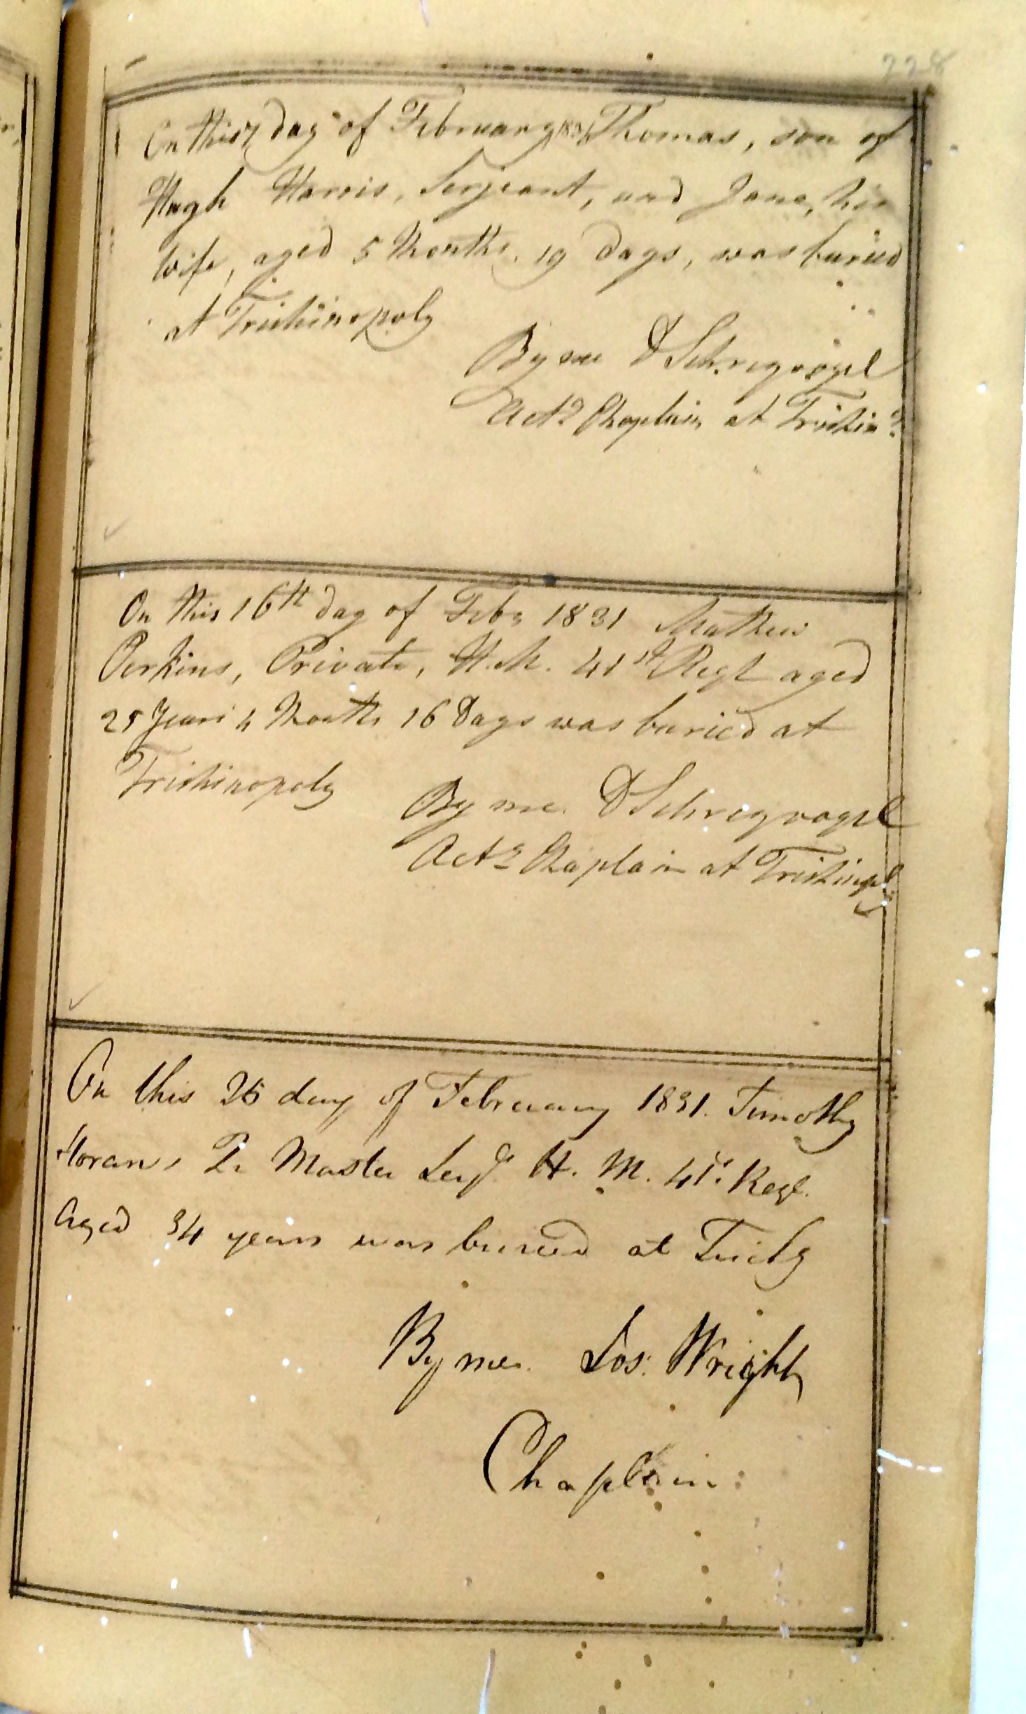 228
On this 7 day of February 1831 Thomas, son of
Hugh Harris, Serjeant, and Jane, his
wife, aged 5 Months 19 days, was buried
at Trichinopoly
By me D Schreyvogel
Actg Chaplain at Trichino.
On this 16th day of Feby 1831 Mathew
Perkins, Private, H.M. 41st Regt aged
25 Years 4 Months 16 Days was buried at
Trichinopoly
By me. D Schreyvogel
Actg Chaplain at Trichinoply
On this 25 day of February 1831. Timothy
Horan, Master Serjt H. M. 41st Regt.
Aged 34 years was buried at Trichy
By me. Jos: Wright
Chaplain: